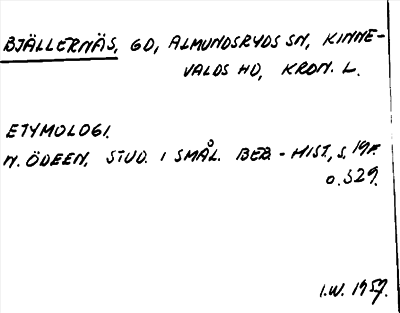 BJÄLLERNÄS, GD, ALMUNDSRYDS SN, KINNE-
VALDS HD, KRON. L.
ETYMOLOGI.
N. ÖDEEN, STUD. I SMÅL. BEB.-HIST, S. 19F.
O. 529.
I.W. 1957.